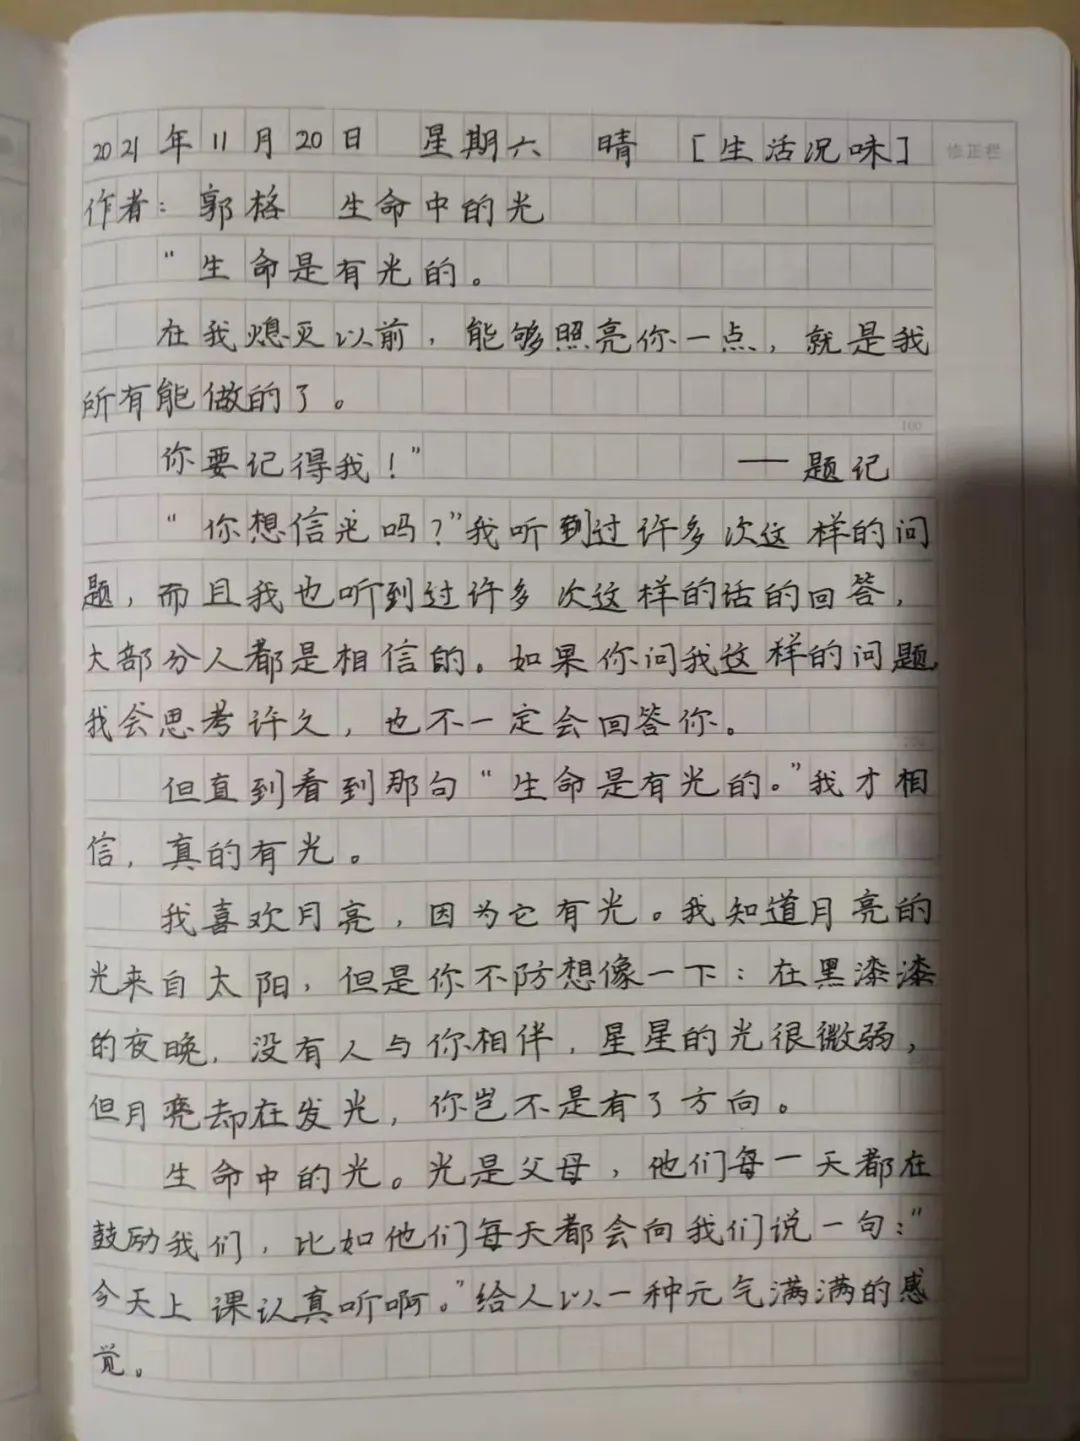 2021年11月20日 星期六 晴 [生活况味] 修正栏
作者：郭格 生命中的光
“生命是有光的。
在我熄灭以前，能够照亮你一点，就是我
所有能做的了。
100
你要记得我！” ——题记
“你想信光吗？”我听到过许多次这样的问
题，而且我也听到过许多次这样的话的回答，
大部分人都是相信的。如果你问我这样的问题
我会思考许久，也不一定会回答你。
但直到看到那句“生命是有光的。”我才相
信，真的有光。
我喜欢月亮，因为它有光。我知道月亮的
光来自太阳，但是你不防想像一下：在黑漆漆
的夜晚，没有人与你相伴，星星的光很微弱，
但月亮却在发光，你岂不是有了方向。
生命中的光。光是父母，他们每一天都在
鼓励我们，比如他们每天都会向我们说一句：“
今天上课认真听啊。”给人以一种元气满满的感
觉。